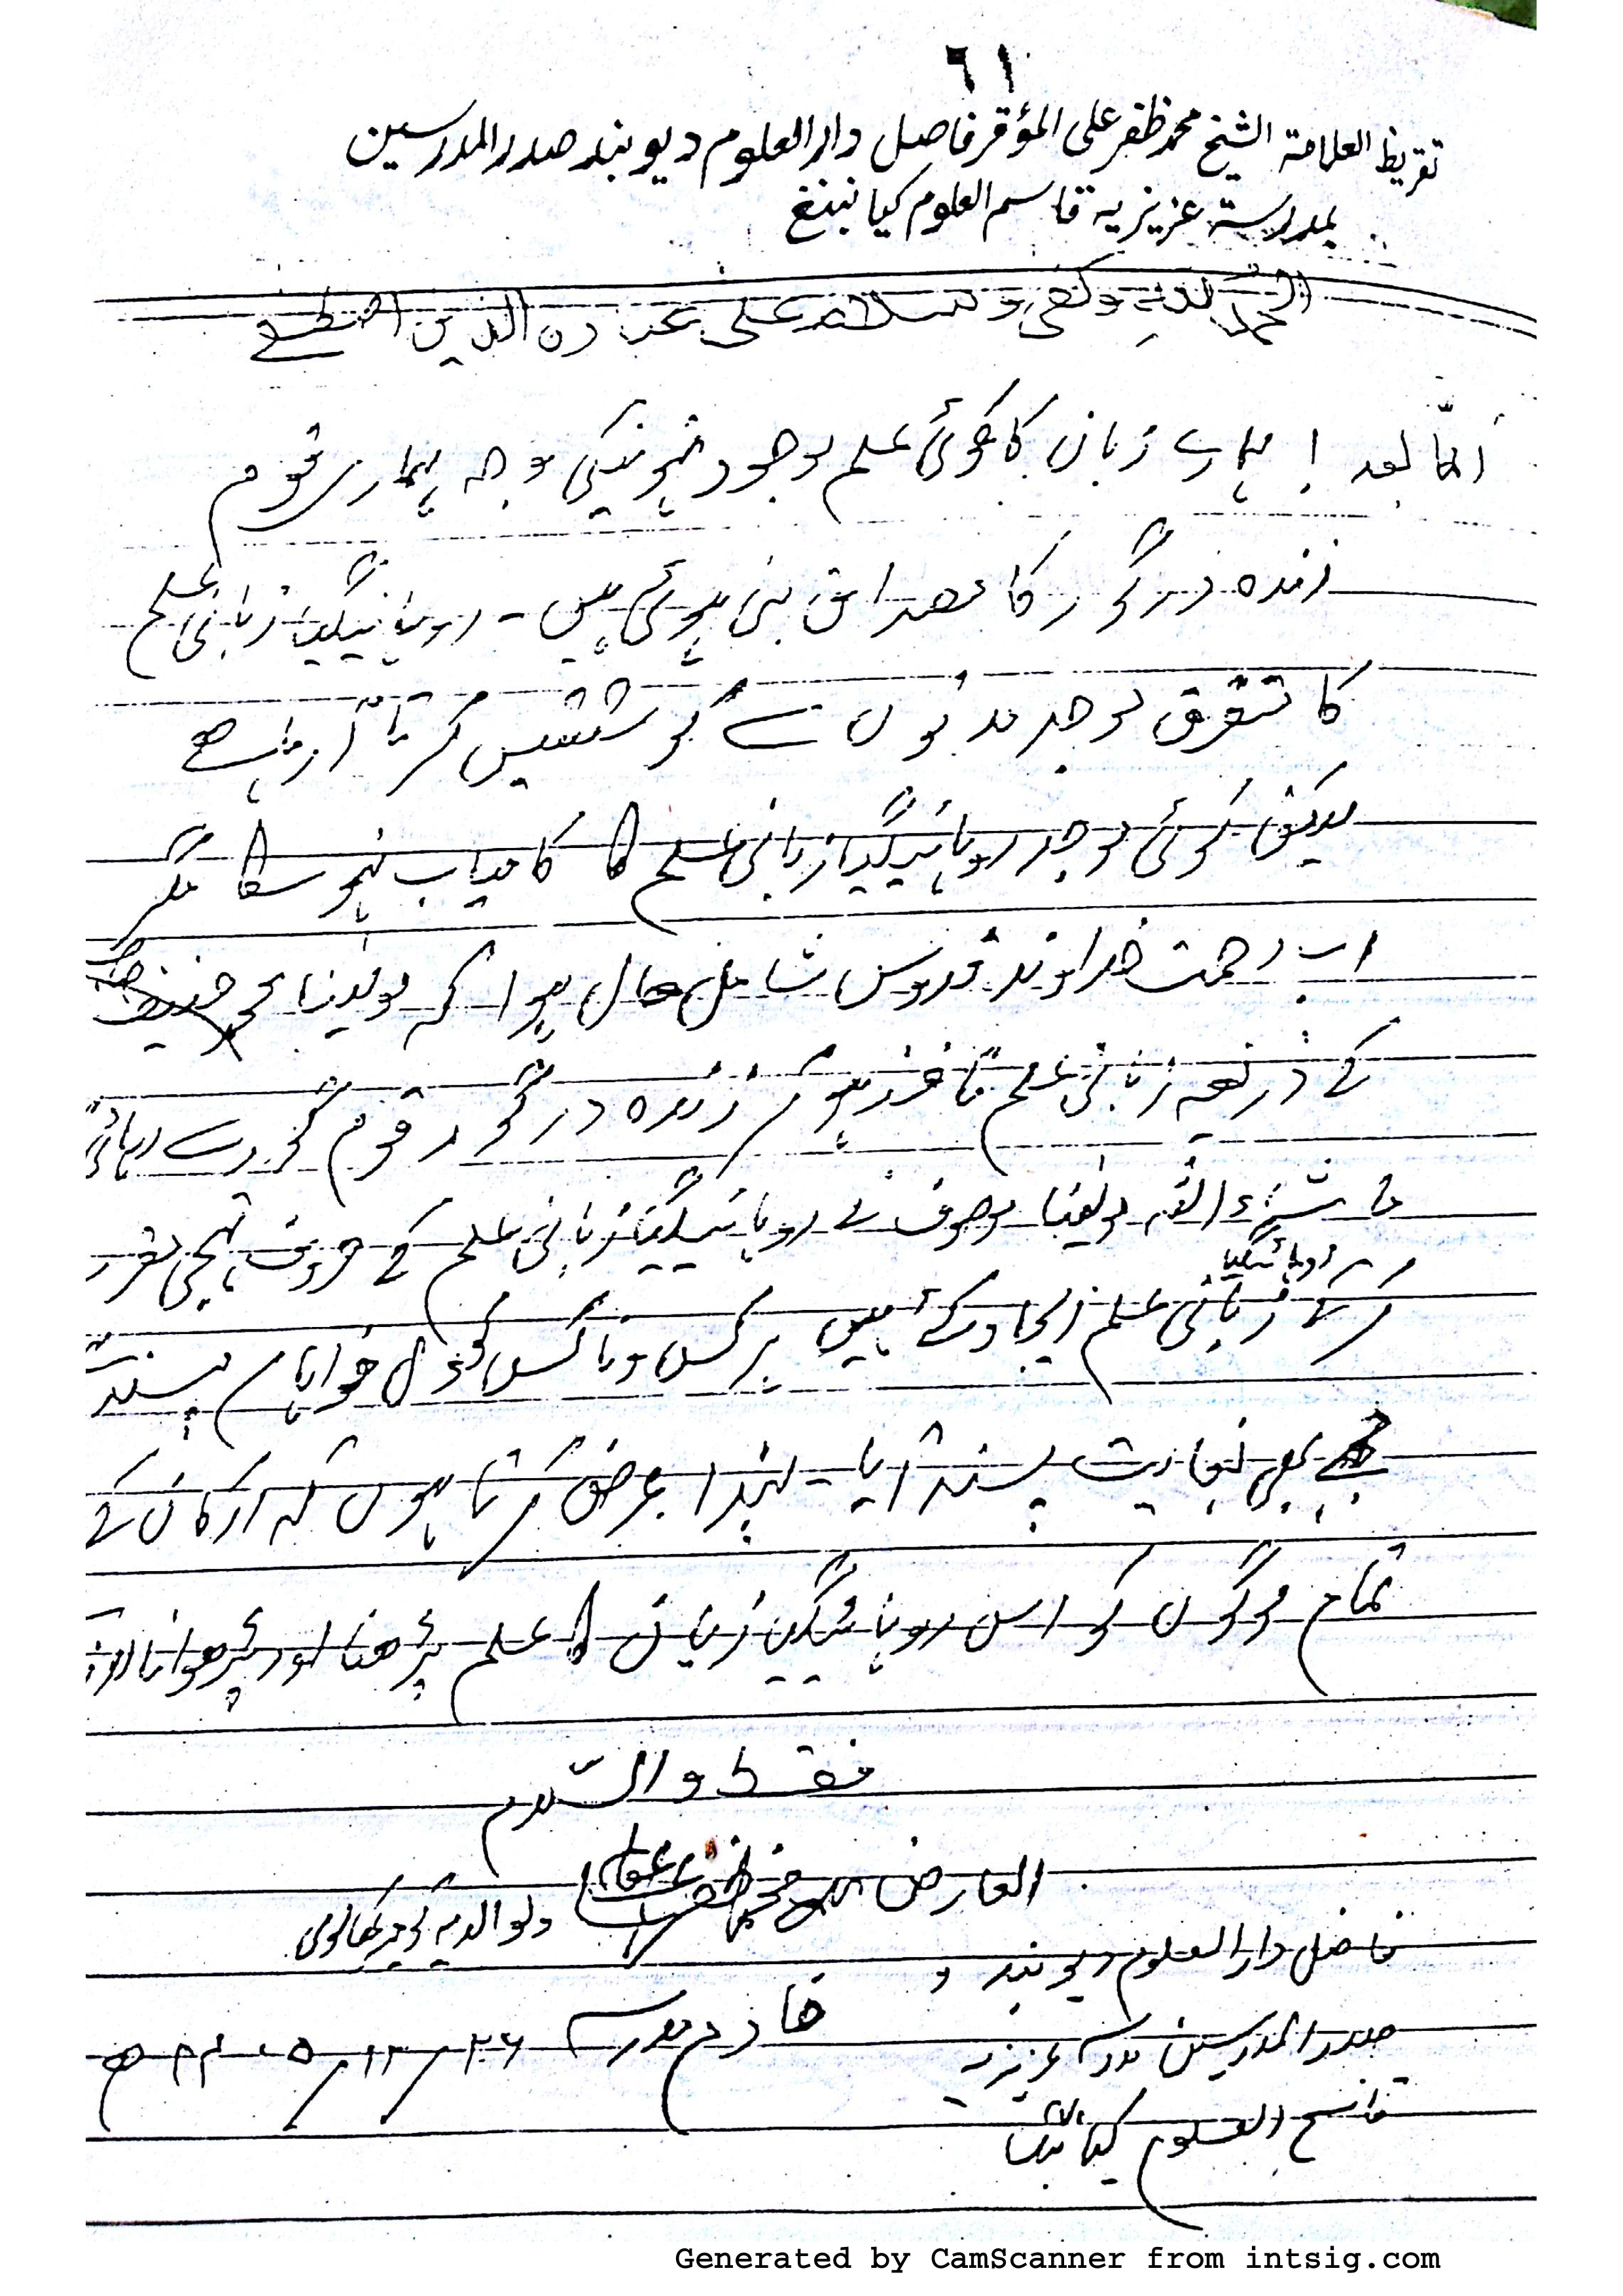 ٦١
تقریظ العلامۃ الشیخ محمد ظفر علی المؤقر فاضل دار العلوم دیوبند صدر المدرسین
بمدرسۃ عزیزیہ قاسم العلوم
الحمد للہ وکفی وسلام علی عبادہ الذین اصطفے
امّا بعد ! ہمارے زبان کا کوئی علم موجود نہونیکی وجہ ہماری قوم
زندہ درگور کا مصداق بنی ہوئی ہیں - روہانیگیا زبانی علم
کا متفرق موجد مدتوں سے کوششیں کرتا آرہا ہے
لیکن کوئی موجد روہانیگیا زبانی علم کا کامیاب نہو سکا مگر
اب رحمت خداوند قدوس شامل حال ہوا کہ مولینا محمد حنیف صاحب
کے ذریعہ زبانی علم نافذ ہوکر زندہ درگور قوم گور سے رہائی
ماشاء اللہ مولینا موصوف نے روہانیگیا زبانی علم کے حروف تہجی مقرر
روہانیگیا
کرکے زبانی علم ایجاد کئے ہیں ہرکس وناکس خواہاں پسند
مجھے بھی نہایت پسند آیا - لہذا عرض کرتا ہوں کہ ارکان کے
تمام لوگوں کو اس روہانیگیا زبان کا علم پڑھنا اور پڑھوانا
فقط والسّلام
العارض محمد ظفر علی عفا ولوالدیہ
فاضل دار العلوم دیوبند و
صدر المدرسین مدرسہ عزیزیہ خادم مدرسہ ٢٦/١٢/١٤٠٥ھ
قاسم العلوم
Generated by CamScanner from intsig.com